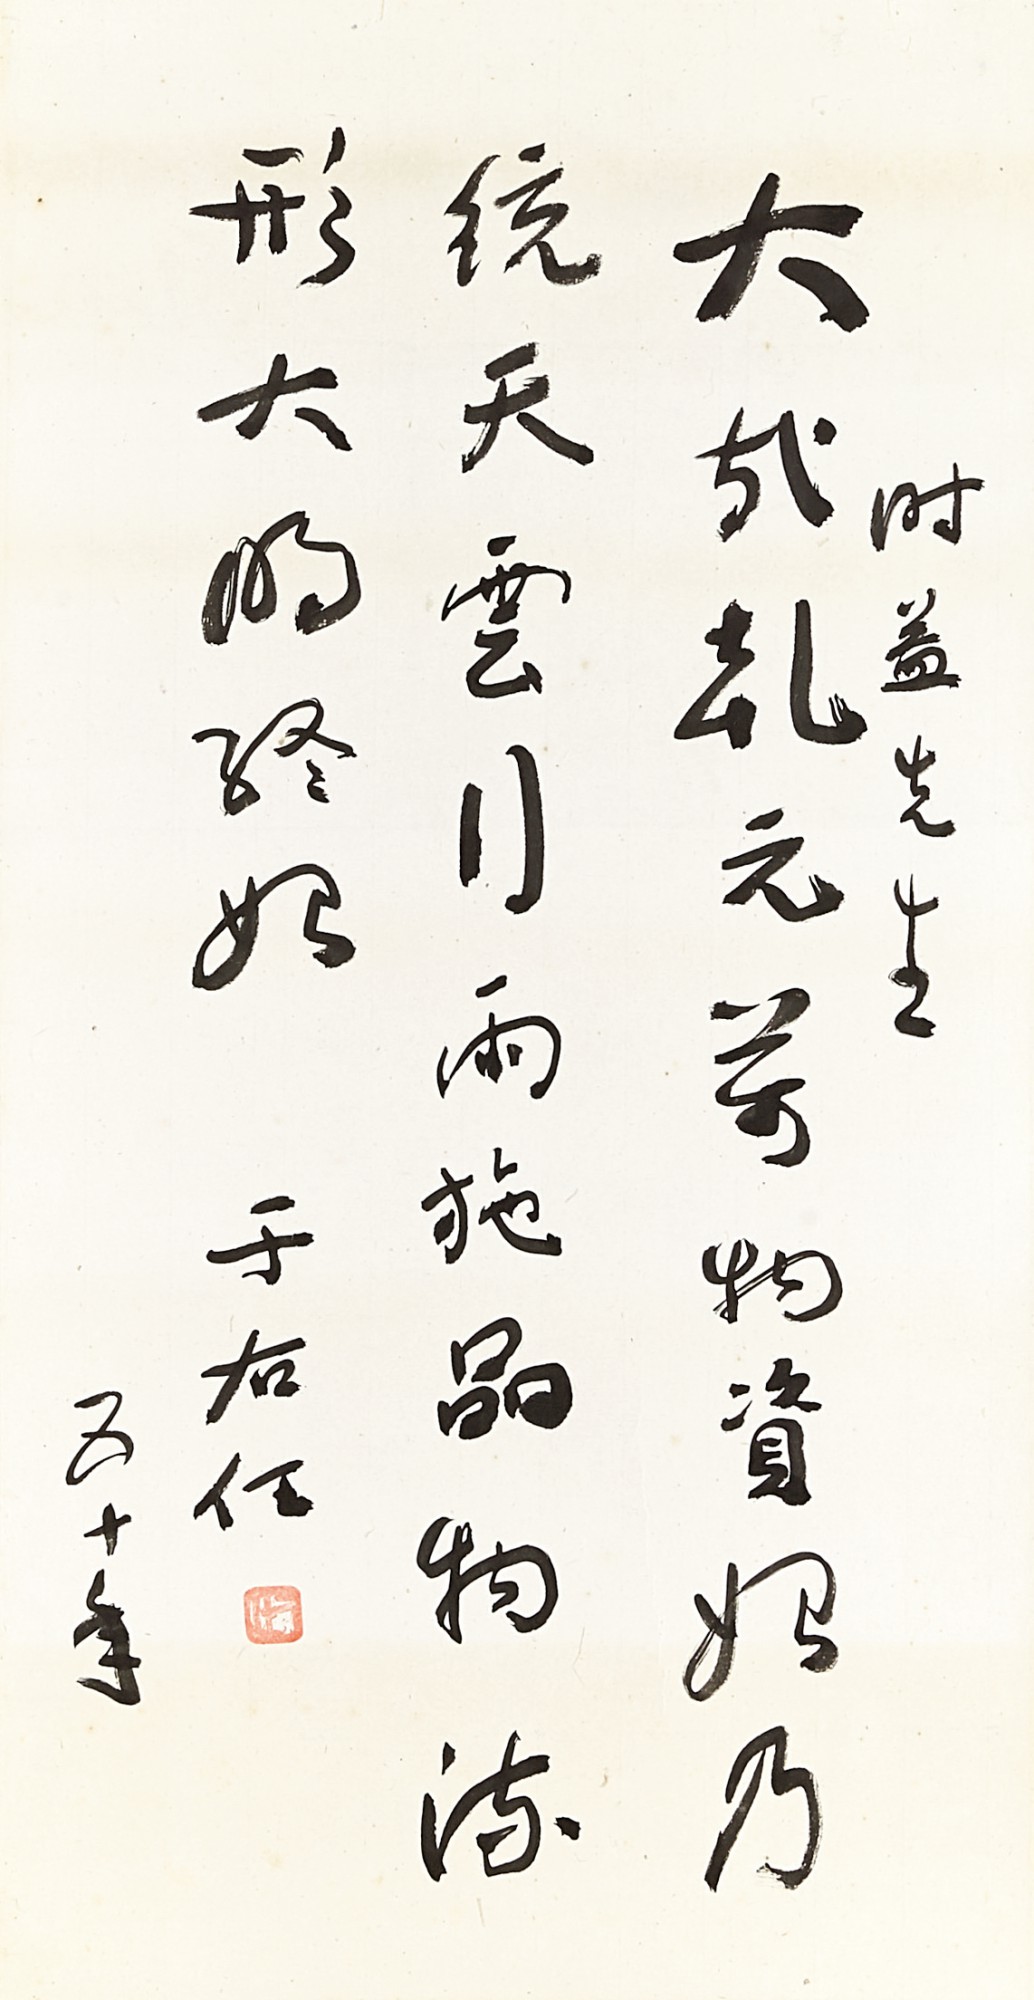 時益先生
大哉乾元萬物資始乃
統天雲行雨施品物流
形大明終始
于右任
五十年